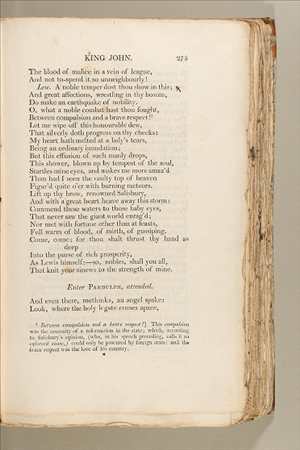 KING JOHN. 275
The blood of malice in a vein of league,
And not to-spend it so unneighbourly!
Lew. A noble temper dost thou show in this;
And great affections, wrestling in thy bosom,
Do make an earthquake of nobility.
O, what a noble combat hast thou fought,
Between compulsion and a brave respect!³
Let me wipe off this honourable dew,
That silverly doth progress on thy cheeks:
My heart hath melted at a lady's tears,
Being an ordinary inundation;
But this effusion of such manly drops,
This shower, blown up by tempest of the soul,
Startles mine eyes, and makes me more amaz'd
Than had I seen the vaulty top of heaven
Figur'd quite o'er with burning meteors.
Lift up thy brow, renowned Salisbury,
And with a great heart heave away this storm:
Commend these waters to those baby eyes,
That never saw the giant world enrag'd;
Nor met with fortune other than at feasts,
Full warm of blood, of mirth, of gossiping.
Come, come; for thou shalt thrust thy hand as
deep
Into the purse of rich prosperity,
As Lewis himself:—so, nobles, shall you all,
That knit your sinews to the strength of mine.
Enter PANDULPH, attended.
And even there, methinks, an angel spake:
Look, where the holy legate comes apace,
³ Between compulsion and a brave respect!] This compulsion
was the necessity of a reformation in the state; which, according
to Salisbury's opinion, (who, in his speech preceding, calls it an
enforced cause,) could only be procured by foreign arms: and the
brave respect was the love of his country.